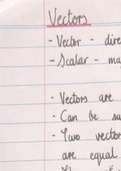 Vectors
- Vector - dire
- Scalar - ma
- Vectors are
- Can be su
- Two vector
are equal